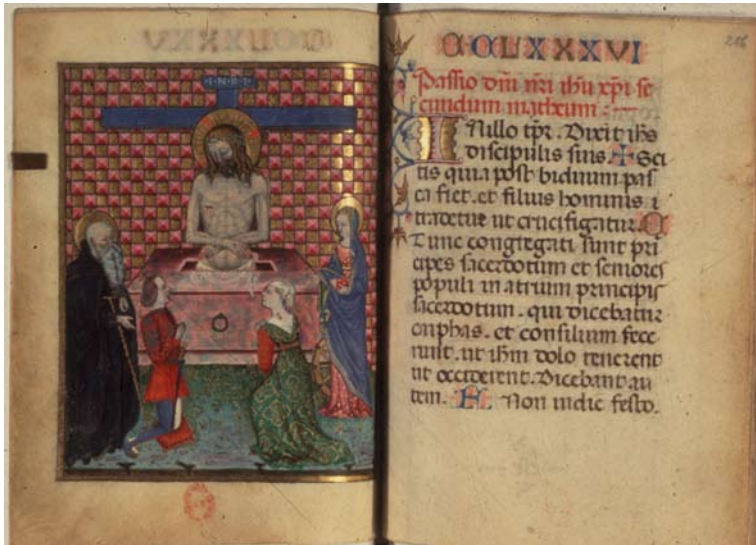 CCLXXXVI
Passio dni nri ihu xpi se
cundum matheum :
In illo tpr. Dixit ihs
discipulis suis. + Sci
tis quia post biduum pas
ca fiet. et filius hominis
tradetur ut crucifigatur. C
Tunc congregati sunt pri
cipes sacerdotum et seniores
populi in atrium principis
sacerdotum. qui dicebatur
cayphas. et consilium fece
runt. ut ihm dolo tenerent
et occiderent. Dicebant au
tem. Non in die festo.